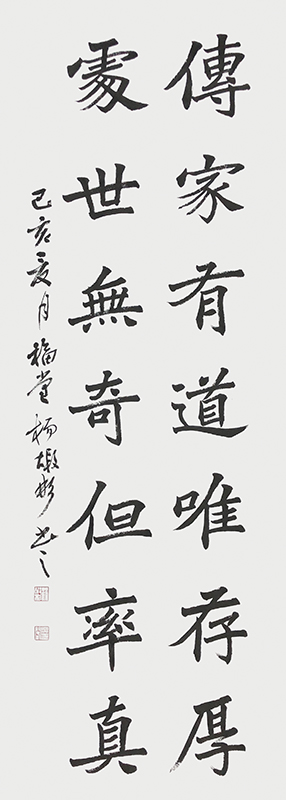 傳家有道唯存厚
處世無奇但率真
己亥夏月福堂楊墩彬書之